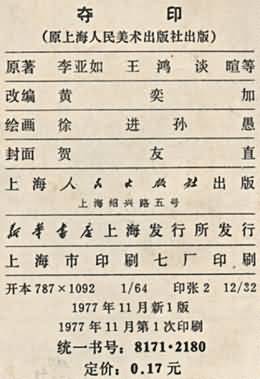 夺 印
(原上海人民美术出版社出版)
原著 李亚如 王鸿 谈暄等
改编 黄奕加
绘画 徐进 孙愚
封面 贺友直
上海人民出版社出版
上海绍兴路五号
新华书店上海发行所发行
上海市印刷七厂印刷
开本 787×1092 1/64 印张 2 12/32
1977年11月新1版
1977年11月第1次印刷
统一书号: 8171·2180
定价: 0.17元